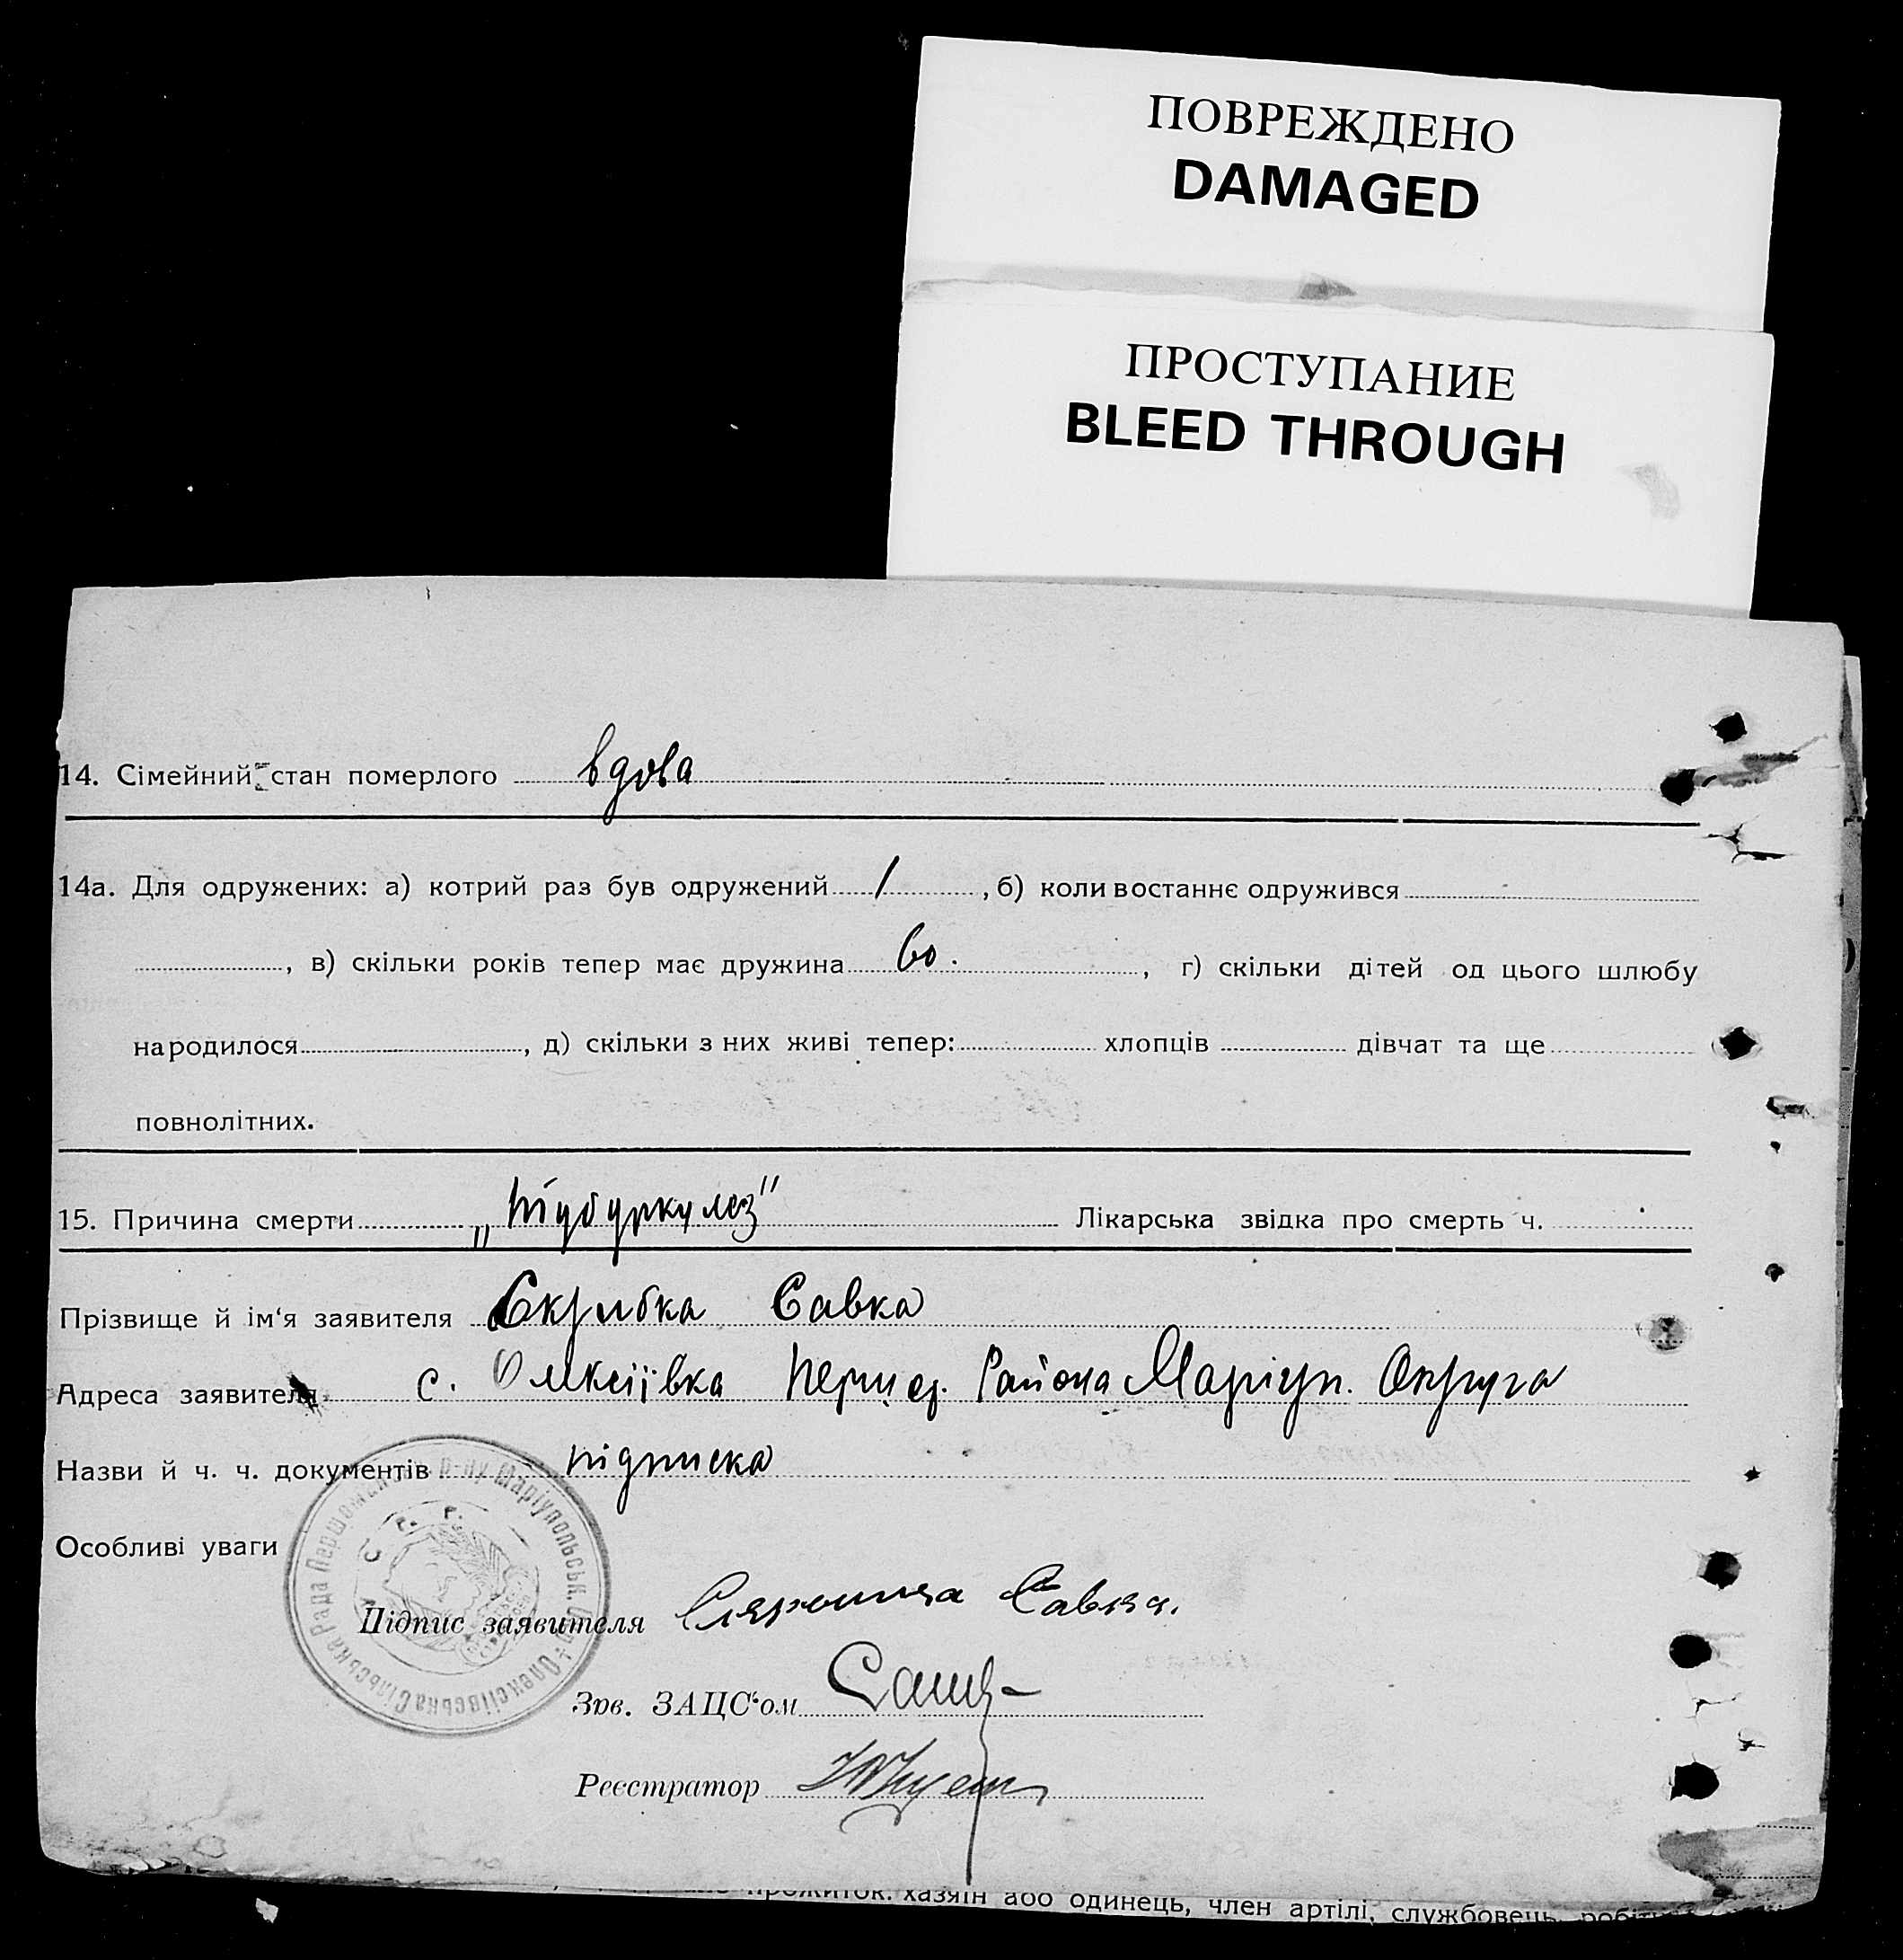 ПОВРЕЖДЕНО
DAMAGED
ПРОСТУПАНИЕ
BLEED THROUGH
14. Сімейний стан померлого вдова
14а. Для одружених: а) котрий раз був одружений 1 , б) коли востаннє одружився
, в) скільки років тепер має дружина 60. , г) скільки дітей од цього шлюбу
народилося , д) скільки з них живі тепер: хлопців дівчат та ще
повнолітних.
15. Причина смерти „Тубуркулез" Лікарська звідка про смерть ч.
Прізвище й ім'я заявителя Скрибка Савка
Адреса заявителя с. Олексіївка Перш. Района Маріуп. Округа
Назви й ч. ч. документів підписка
Особливі уваги
Олексіївська Сільська Рада Першо р-ну Маріупольськ.
Підпис заявителя Савка.
Зав. ЗАЦС'ом
Реєстратор
прожиток: хазяїн або одинець, член артілі, службовець,